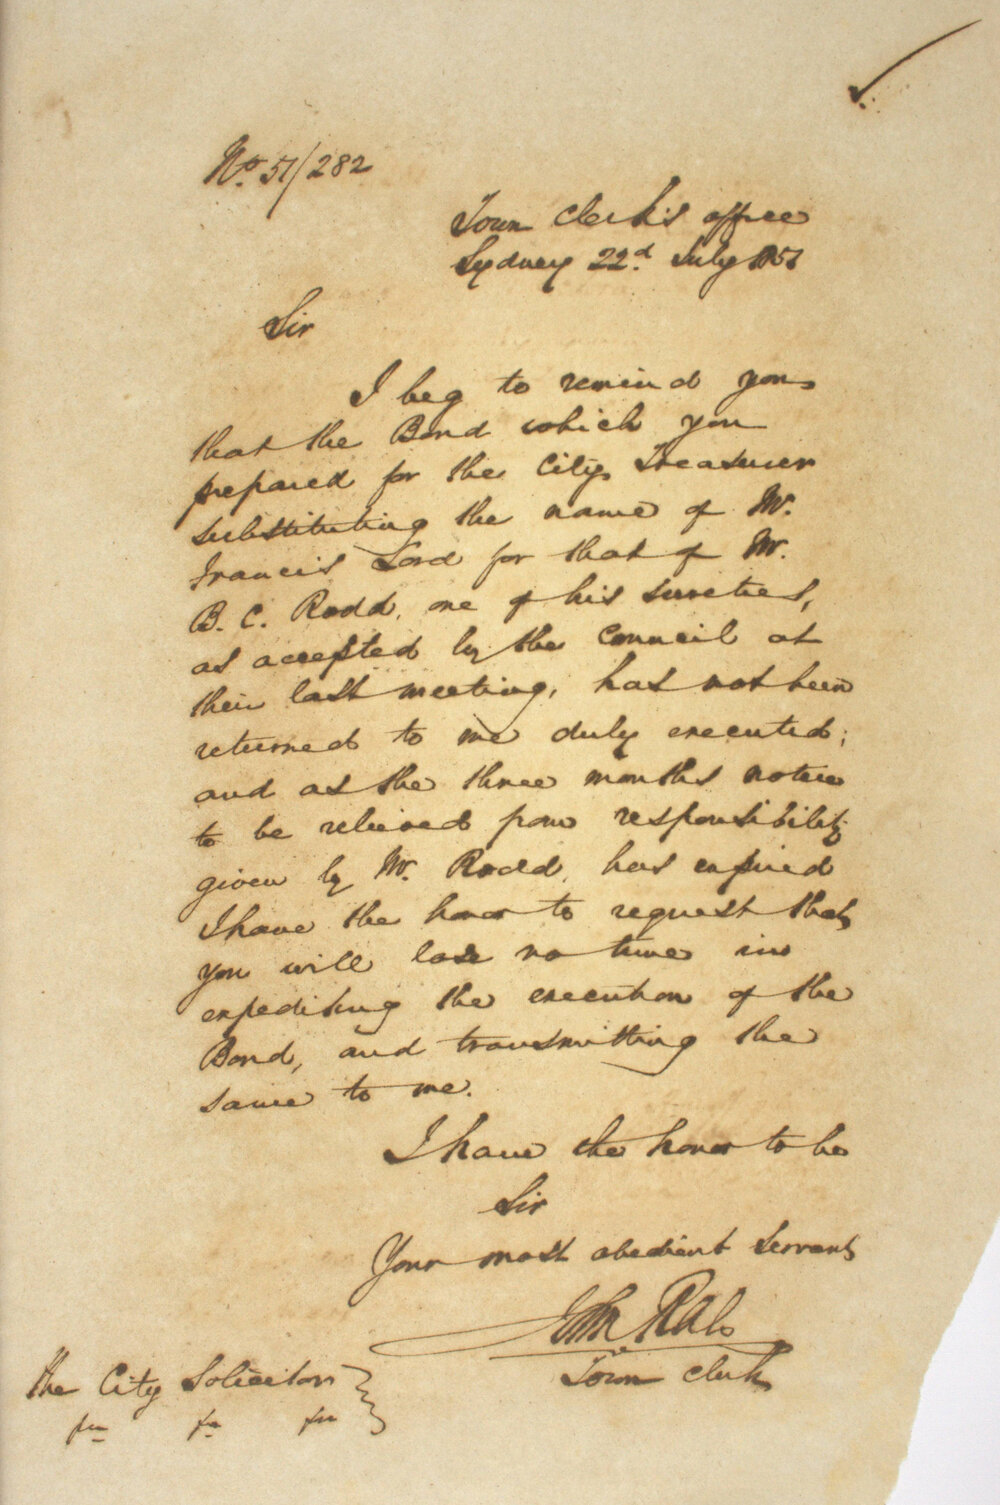 No. 51/282
Town Clerk's office
Sydney 22d. July 1851
Sir
I beg to remind you
that the Bond which you
prepared for the City Treasurer
substituting the name of Mr.
Francis Lord for that of Mr.
B. C. Rodd, one of his sureties,
as accepted by the Council at
their last meeting, has not been
returned to me duly executed;
and as the three months notice
to be relieved from responsibility
given by Mr. Rodd, has expired
I have the honor to request that
you will lose no time in
expediting the execution of the
Bond, and transmitting the
same to me.
I have the honor to be
Sir
Your most obedient Servant
John Rae
Town Clerk
the City Solicitor